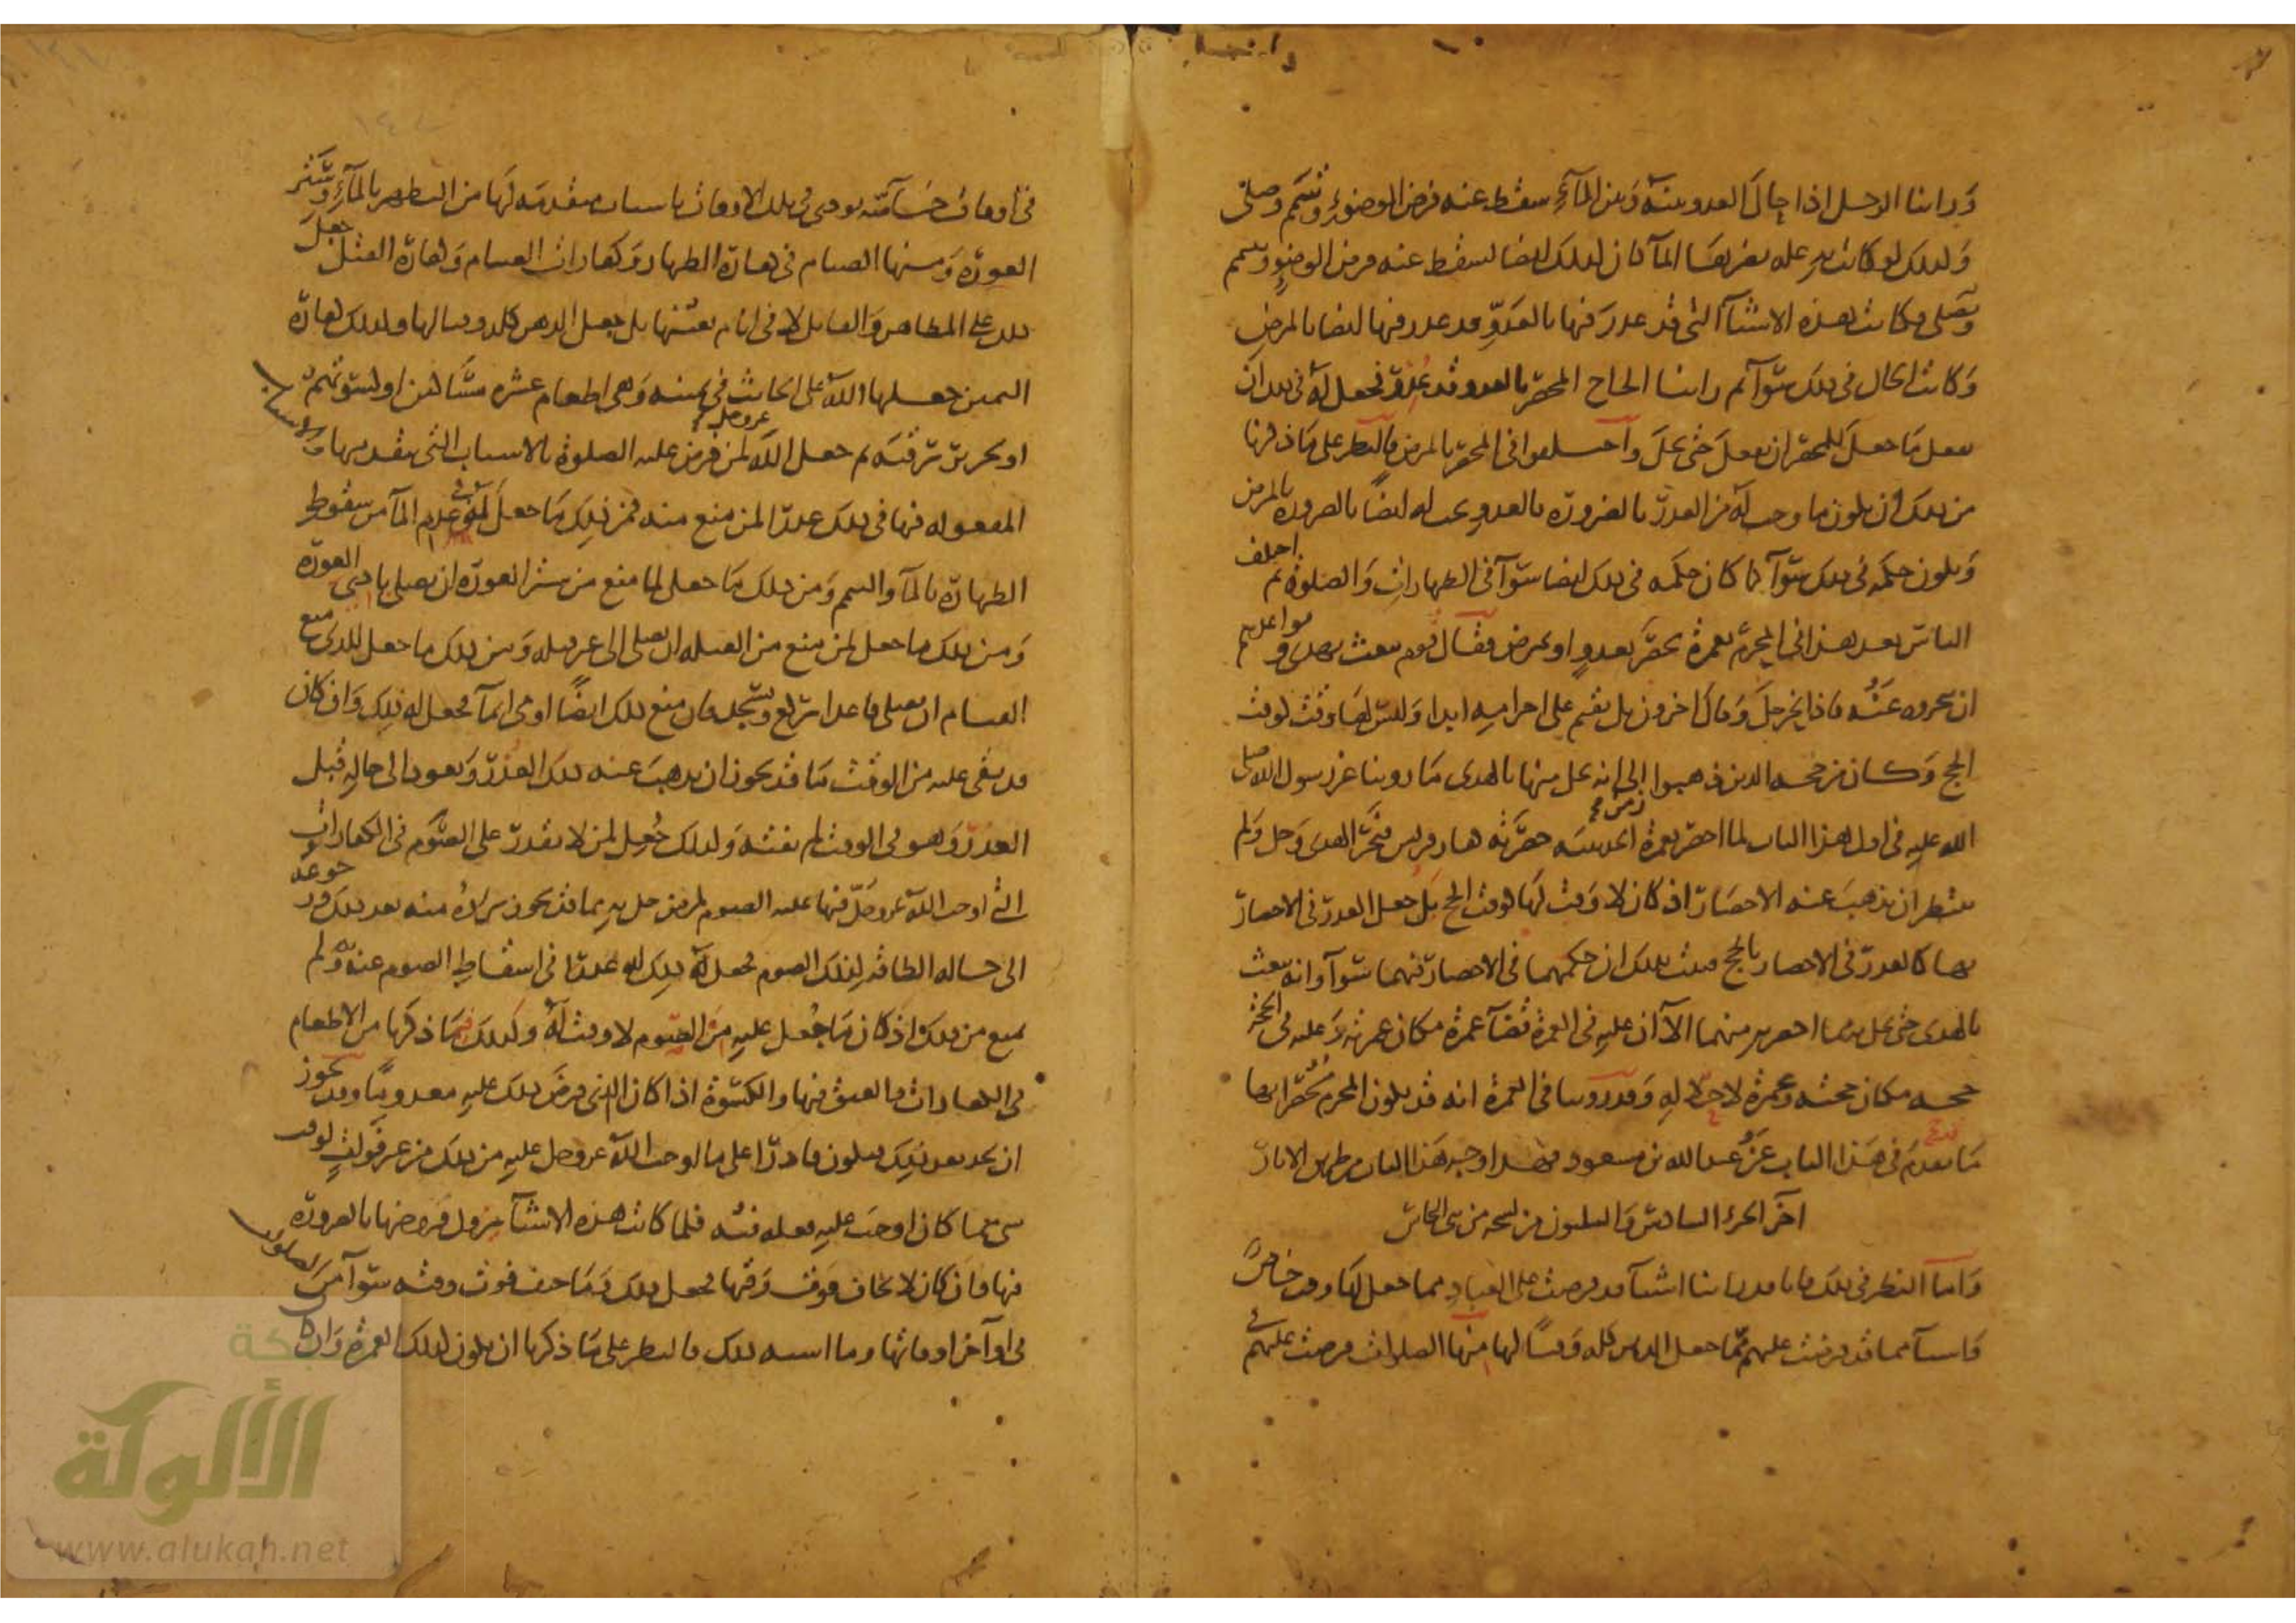 ورأينا الرجل إذا حال العدو بينه وبين الماء سقط عنه فرض الوضوء وتيمم وصلى
وكذلك لو كانت به علة يضر بها الماء كان كذلك أيضا يسقط عنه فرض الوضوء وتيمم
ويصلي فكانت هذه الأشياء التي قد عذر فيها بالعدو قد عذر فيها أيضا بالمرض
وكانت الحال في ذلك سواء ثم رأينا الحاج المحصر بالعدو قد عذر فجعل له في ذلك أن
يفعل ما جعل للمحصر أن يفعل حتى يحل واختلفوا في المحصر بالمرض فالنظر على ما ذكرنا
من ذلك أن يكون ما وجب له من العذر بالضرورة بالعدو يجب له أيضا بالضرورة بالمرض
ويكون حكمه في ذلك سواء كما كان حكمه في ذلك أيضا سواء في الطهارات والصلوة ثم اختلف
الناس بعد هذا في المحرم بعمرة يحصر بعدو أو بمرض فقال قوم يبعث بهدي ويواعدهم
أن ينحروه عنه فإذا نحر حل وقال آخرون بل يقيم على إحرامه أبدا وليس لها وقت كوقت
الحج وكان من حجة الذين ذهبوا إلى أنه يحل منها بالهدي ما روينا عن رسول الله صلى
الله عليه في أول هذا الباب لما أحصر بعمرة زمن الحديبية حصرته كفار قريش فنحر الهدي وحل ولم
ينتظر أن يذهب عنه الإحصار إذ كان لا وقت لها كوقت الحج بل جعل العذر في الإحصار
بها كالعذر في الإحصار بالحج فثبت بذلك أن حكمهما في الإحصار فيهما سواء وأنه يبعث
بالهدي حتى يحل به مما أحصر به منهما إلا أن عليه في العمرة قضاء عمرة مكان عمرته وعليه في الحجة
حجة مكان حجته وعمرة لإحلاله وقد روينا في العمرة أنه قد يكون المحرم محصرا بها
ما تقدم في هذا الباب عن عبد الله بن مسعود فهذا وجه هذا الباب من طريق الآثار
آخر الجزء السادس والثلثون من نسخة
وأما النظر في ذلك فإنا قد رأينا أشياء قد فرضت على العباد مما جعل لها وقت خاص
وأشياء مما قد فرضت عليهم مما جعل الدهر كله وقتا لها منها الصلوات فرضت عليهم
في أوقات خاصة تؤدى في تلك الأوقات بأسباب متقدمة لها من التطهر بالماء وستر
العورة ومنها الصيام في كفارة الظهار وكفارات الصيام وكفارة القتل جعل
ذلك على المظاهر والقاتل لا في أيام بعينها بل جعل الدهر كله وقتا لها وكذلك كفارة
اليمين جعلها الله عز وجل على الحانث في يمينه وهي إطعام عشرة مساكين أو كسوتهم
أو تحرير رقبة ثم جعل الله عز وجل لمن فرض عليه الصلوة بالأسباب التي تتقدمها والأسباب
المفعولة فيها في ذلك عذرا لمن منع منه فمن ذلك ما جعل له في عدم الماء من سقوط
الطهارة بالماء والتيمم ومن ذلك ما جعل لما منع من ستر العورة أن يصلي بادي العورة
ومن ذلك ما جعل لمن منع من القبلة أن يصلي إلى غير قبلة ومن ذلك ما جعل للذي منع
القيام أن يصلي قاعدا يركع ويسجد فإن منع ذلك أيضا أومى إيماء فجعل له ذلك وإن كان
قد بقي عليه من الوقت ما قد يجوز أن يذهب عنه ذلك العذر ويعود إلى حاله قبل
العذر وهو في الوقت لم يفته وكذلك جعل لمن لا يقدر على الصوم في الكفارات
التي أوجب الله عز وجل فيها عليه الصوم لمرض حل به مما قد يجوز برؤه منه بعد ذلك ورجوعه
إلى حالة الطاقة لذلك الصوم فجعل له ذلك عذرا في إسقاط الصوم عنه ولم
يمنع من ذلك إذ كان ما جعل عليه من الصوم لا وقت له وكذلك فيما ذكرنا من الإطعام
في الكفارات والعتق فيها والكسوة إذا كان الذي فرض ذلك عليه معدوما وقد يجوز
أن يجد بعد ذلك فيكون قادرا على ما أوجب الله عز وجل عليه من ذلك من غير فوات لوقت
شيء مما كان أوجب عليه فعله فيه فلما كانت هذه الأشياء يزول فروضها بالضرورة
فيها وإن كان لا يخاف فوت وقتها فجعل ذلك وما خيف فوت وقته سواء من الصلوات
في أواخر أوقاتها وما أشبه ذلك فالنظر على ما ذكرنا أن يكون كذلك العمرة وإن كان
الألوكة
www.alukah.net